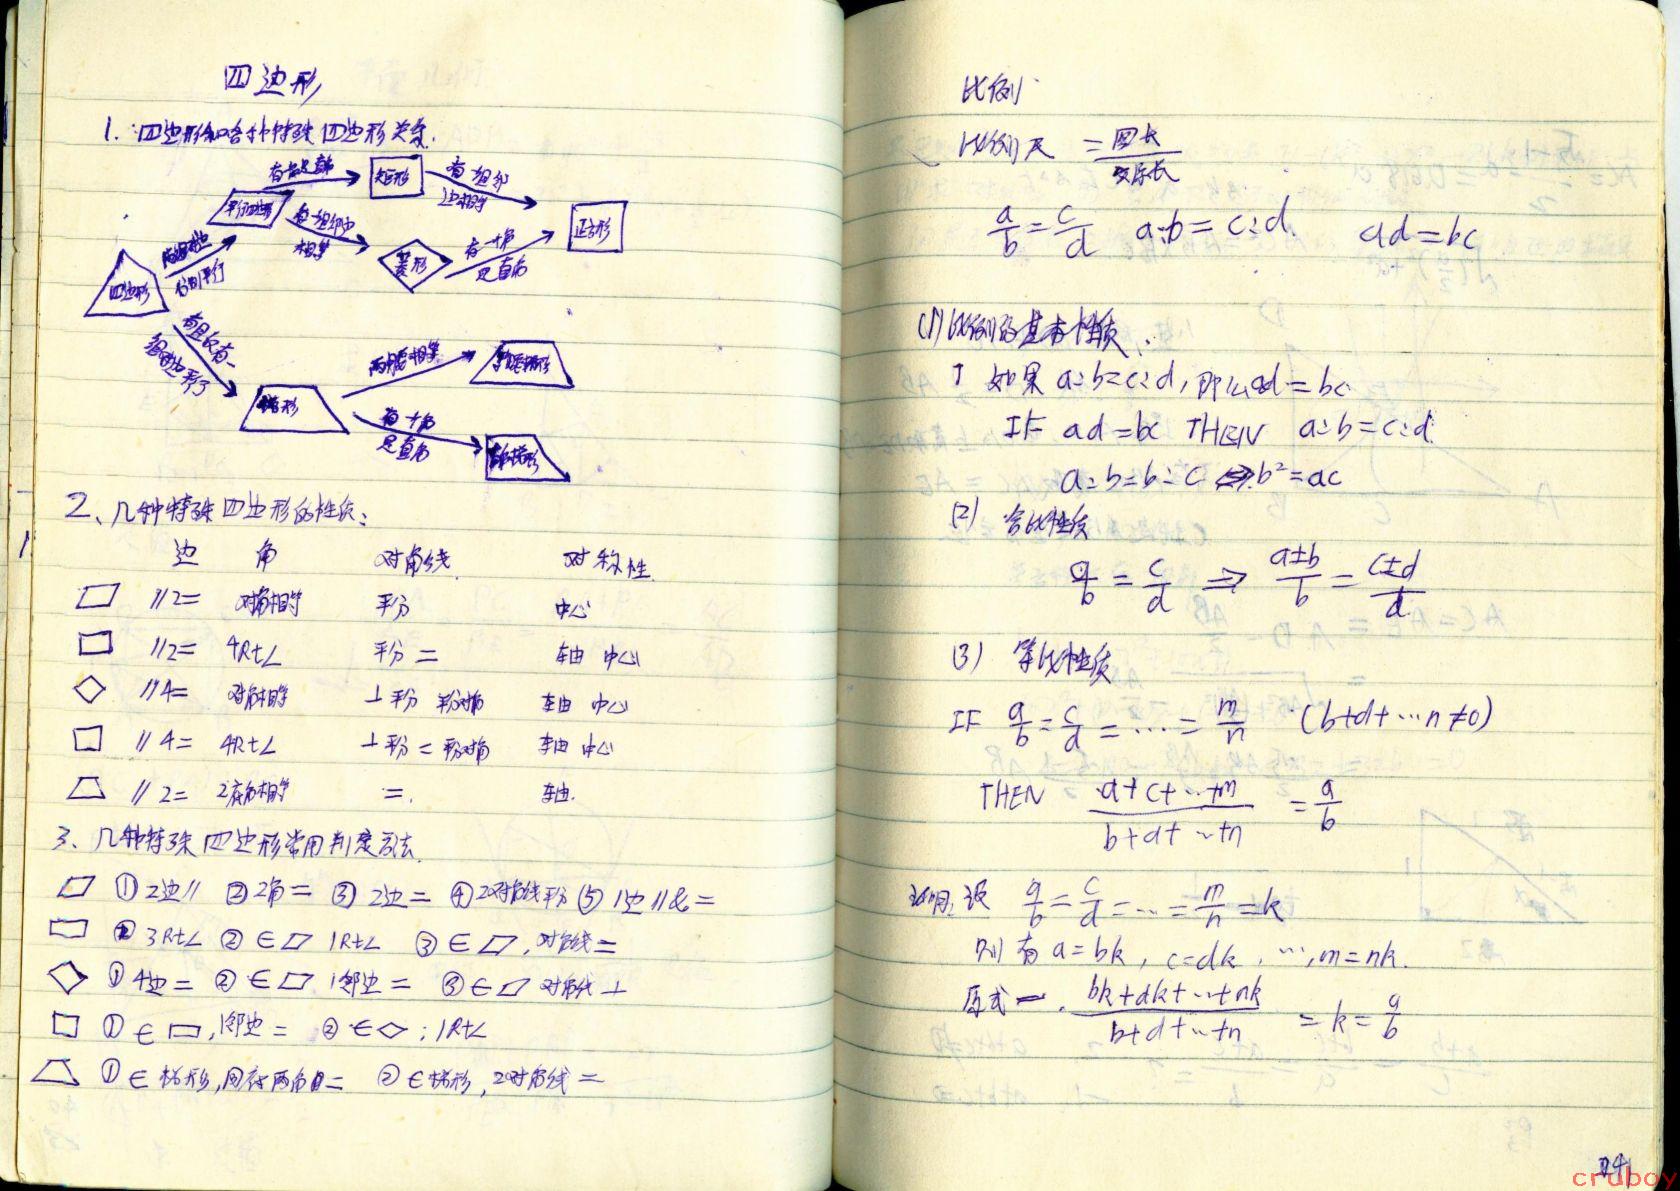 四边形
1. 四边形和各种特殊四边形关系.
有一角是直角
矩形
有一组邻
边相等
平行四边形
有一组邻边
相等
正方形
两组对边
分别平行
菱形
有一角
是直角
四边形
有且仅有一
组对边平行
两腰相等
等腰梯形
梯形
有一角
是直角
直角梯形
2、几种特殊四边形的性质:
边 角 对角线 对称性
▱ //2= 对角相等 平分 中心
▭ //2= 4Rt∠ 平分 = 轴 中心
◇ //4= 对角相等 ⊥平分 平分对角 轴 中心
□ //4= 4Rt∠ ⊥平分 = 平分对角 轴 中心
//2= 2底角相等 = 轴.
3、几种特殊四边形常用判定方法.
▱ ①2边// ②2角= ③2边= ④2对角线平分 ⑤1边//&=
▭ ①3Rt∠ ②∈▱ 1Rt∠ ③∈▱, 对角线=
◇ ①4边= ②∈▱ 1邻边= ③∈▱ 对角线⊥
□ ①∈▭, 1邻边= ②∈◇; 1Rt∠
①∈梯形, 同底两角= ②∈梯形, 2对角线=
比例
比例尺 = 图长/实际长
a/b = c/d a:b=c:d ad=bc
(1) 比例的基本性质.
如果 a:b=c:d, 那么ad=bc
IF ad=bc THEN a:b=c:d
a:b=b:c ⇔ b²=ac
(2) 合比性质
a/b = c/d ⇒ a±b/b = c±d/d
(3) 等比性质
IF a/b = c/d = … = m/n (b+d+…n≠0)
THEN a+c+…+m/b+d+…+n = a/b
证明: 设 a/b = c/d = … = m/n = k
则有 a=bk, c=dk, …, m=nk.
原式 = bk+dk+…+nk/b+d+…+n = k = a/b
24
cruboy